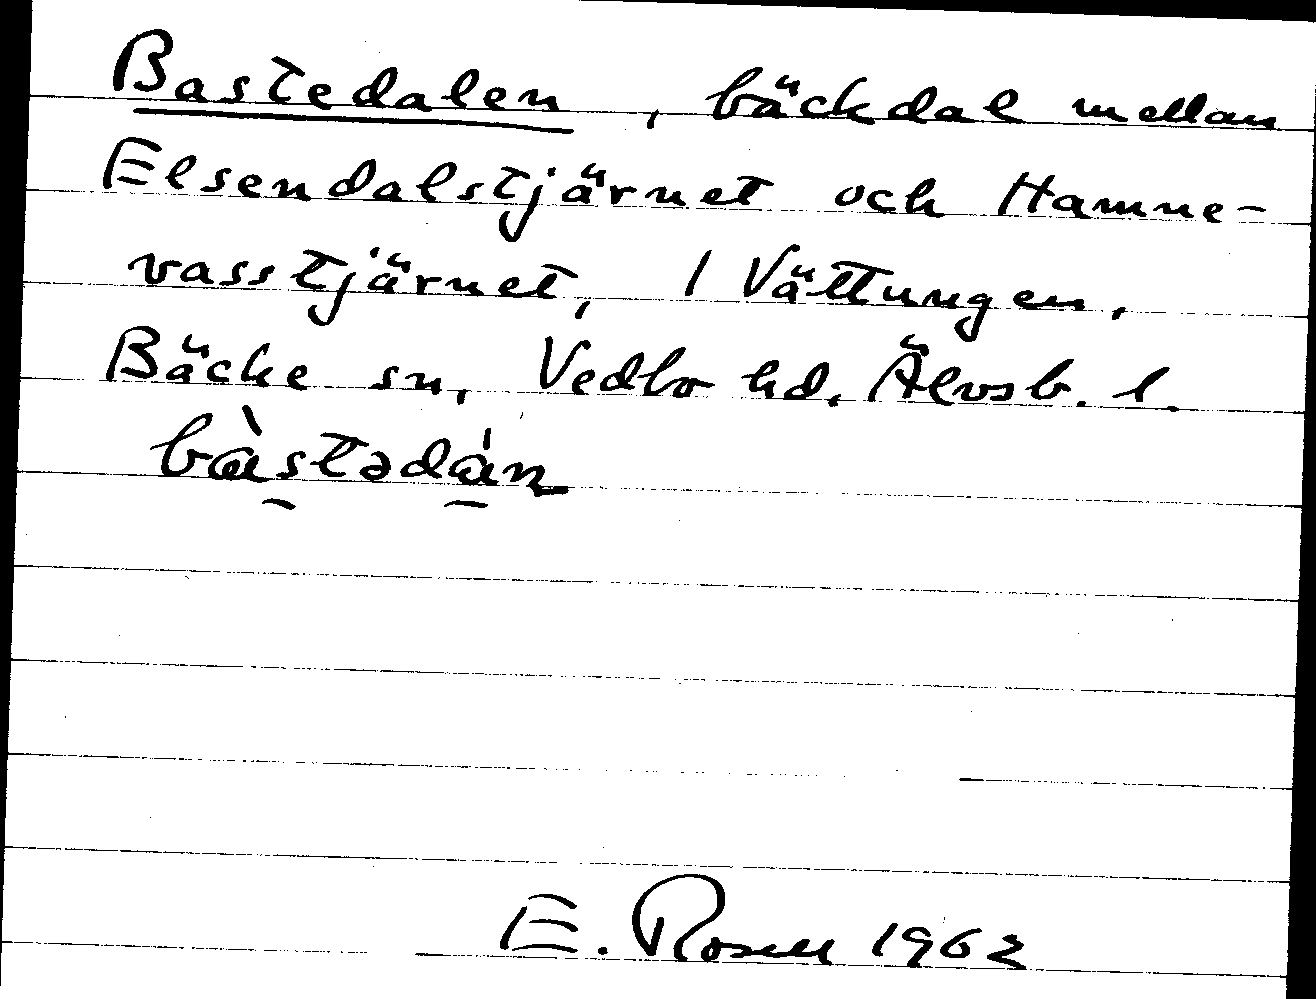 Bastedalen, bäckdal mellan
Elsendalstjärnet och Hamne-
vasstjärnet, 1 Vättungen,
Bäcke sn, Vedbo hd. Älvsb. l.
bàstədán
E. Rosell 1962